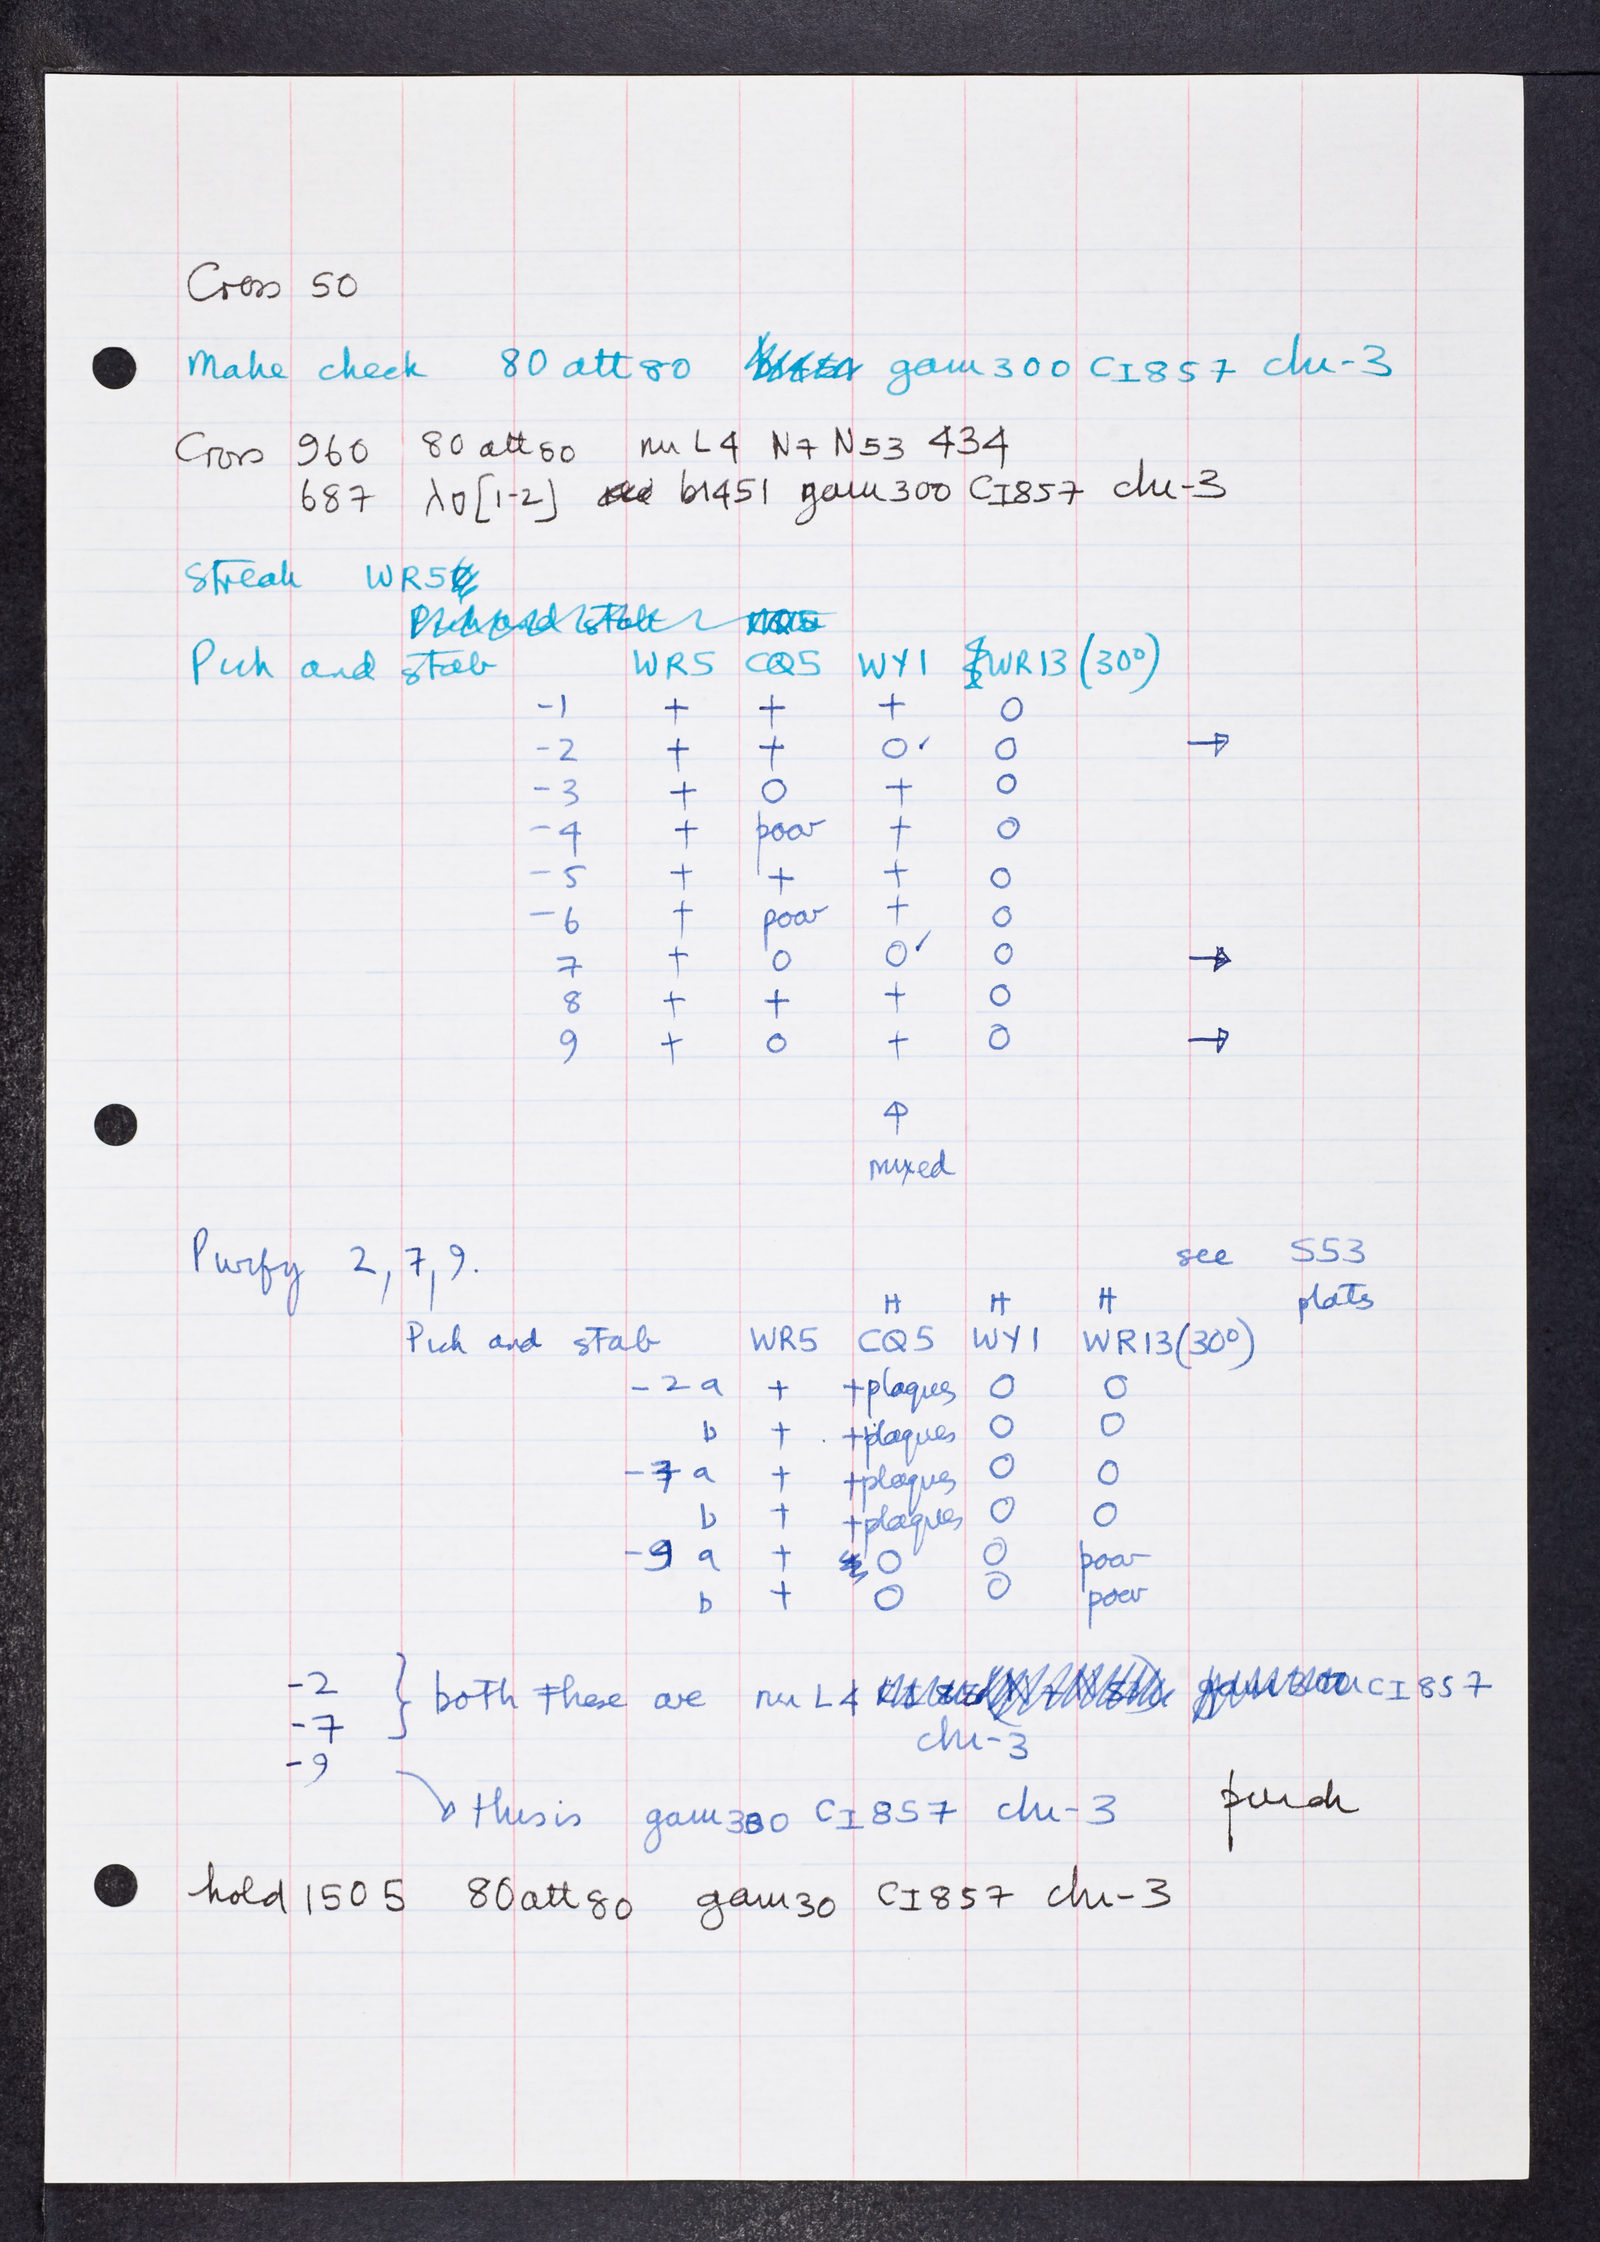 Cross 50
Make check 80 att 80 gam 300 CI857 chi-3
Cross 960 80 att 80 nu L4 N7 N53 434
687 λ0[1-2] b1451 gam 300 CI857 chi-3
Streak WR5
Pick and stab CQ5
Pick and stab WR5 CQ5 WY1 WR13 (30°)
-1 + + + 0
-2 + + 0✓ 0 →
-3 + 0 + 0
-4 + poor + 0
-5 + + + 0
-6 + poor + 0
7 + 0 0✓ 0 →
8 + + + 0
9 + 0 + 0 →
↑
mixed
Purify 2, 7, 9. see S53
H H H plates
Pick and stab WR5 CQ5 WY1 WR13(30°)
-2 a + +plaques 0 0
b + +plaques 0 0
-7 a + +plaques 0 0
b + +plaques 0 0
-9 a + 0 0 poor
b + 0 0 poor
-2 } both these are nu L4 CI857
-7 chi-3
-9
↘ this is gam 300 CI857 chi-3
hold 1505 80 att 80 gam 30 CI857 chi-3